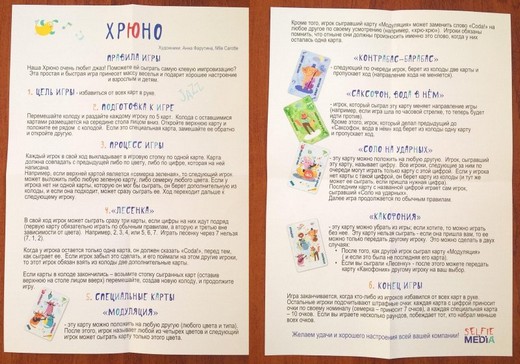 ХРЮНО
Художники: Анна Фадулина, Nitta Candle
ПРАВИЛА ИГРЫ
Наша Хрюно очень любит джаз! Поможете ей сыграть самую клевую импровизацию?
Эта простая и быстрая игра принесет массу веселья и подарит хорошее настроение
и взрослым и детям.
JAZZ
1. ЦЕЛЬ ИГРЫ - избавиться от всех карт в руке.
2. ПОДГОТОВКА К ИГРЕ
Перемешайте колоду и раздайте каждому игроку по 5 карт. Колода с оставшимися
картами размещается на середине стола лицом вниз. Откройте верхнюю карту и
положите ее рядом с колодой. Если это специальная карта, замешайте ее обратно
и откройте другую.
3. ПРОЦЕСС ИГРЫ
Каждый игрок в свой ход выкладывает в игровую стопку по одной карте. Карта
должна совпадать с предыдущей либо по цвету, либо по цифре, которая на ней
написана.
Например: если верхней картой является «семерка зеленая», то следующий игрок
может выложить либо любую зеленую карту, либо семерку любого цвета. Если у
игрока нет ни одной карты, которую он мог бы сыграть, он берет дополнительную из
колоды, и если она подходит, может сразу сыграть ее. Ход переходит дальше к
следующему игроку.
4. «ЛЕСЕНКА»
В свой ход игрок может сыграть сразу три карты, если цифры на них идут подряд
(первую карту обязательно играть по обычным правилам, а вторую и третью вне
зависимости от цвета). Например: 2, 3, 4, или 5, 6, 7. Играть лесенку через 7 нельзя
(7, 1, 2).
Когда у игрока остается только одна карта, он должен сказать «Coda!», перед тем,
как сыграет ее. Если игрок забыл это сделать, и его поймали на этом другие игроки,
то этот игрок обязан взять из колоды две дополнительные карты.
Если карты в колоде закончились – возьмите стопку сыгранных карт (оставив
верхнюю на столе лицом вверх) перемешайте, создав новую колоду, и продолжите
игру.
5. СПЕЦИАЛЬНЫЕ КАРТЫ
«МОДУЛЯЦИЯ»
- эту карту можно положить на любую другую (любого цвета и типа).
После этого, игрок называет любой из четырех цветов и следующий
игрок может сыграть карту только этого цвета.
Кроме того, игрок сыгравший карту «Модуляция» может заменить слово «Coda!» на
любое другое по своему усмотрению (например, «хрю-хрю»). Игроки обязаны
помнить, что отныне они должны произносить именно это слово, когда у них
осталась одна карта.
«КОНТРАБАС-БАРАБАС»
следующий по очереди игрок, берет из колоды две карты и
пропускает ход (направление хода не меняется).
«САКСОФОН, ВОДА В НЁМ»
- игрок, который сыграл эту карту меняет направление игры
(например, если игра шла по часовой стрелке, то теперь будет
идти против).
Кроме этого, игрок, который делал предыдущий до
«Саксофон, вода в нём» ход берет из колоды одну карту
и пропускает ход.
«СОЛО НА УДАРНЫХ»
- эту карту можно положить на любую другую. Игрок, сыгравший
эту карту, называет цифру. Все игроки, следующие за ним по
очереди могут играть только карту с этой цифрой. Если у игрока
нет карты с такой цифрой, он берет карту из колоды (и тут же
может ее сыграть, если пришла нужная цифра)
Последним карту с названной цифрой играет сам игрок,
сыгравший «Соло на ударных».
Далее игра продолжается по обычным правилам.
«КАКОФОНИЯ»
- эту карту можно убрать из игры, если хотите, то можно играть
без нее. Эту карту нельзя сыграть - если она пришла вам, то ее
можно только передать другому игроку. Это можно сделать в двух
случаях:
• После того, как другой игрок сыграл карту «Модуляция»
( и если это была не последняя его карта).
• Если вы сыграли «Лесенку» - после этого можете передать
карту «Какофония» другому игроку на ваш выбор.
6. КОНЕЦ ИГРЫ
Игра заканчивается, когда кто-либо из игроков избавится от всех карт в руке.
Остальные игроки подсчитывают штрафные очки: каждая карта с цифрой приносит
очки по своему номиналу (семерка – 7 очков), а каждая специальная карта приносит
– 10 очков. Если вы играете несколько раундов, побеждает тот, кто набрал меньше
всех очков.
Желаем удачи и хорошего настроения всей вашей компании!
SELFIE
MEDIA